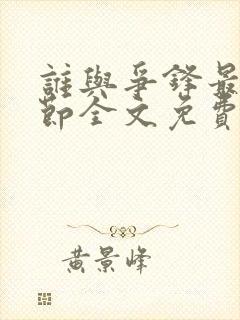 誰與爭鋒最
節全文免費
黃景峰